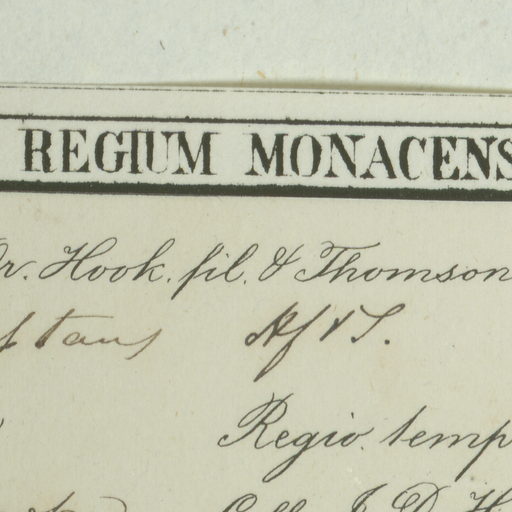 REGIUM MONACENS
Dr. Hook. fil. & Thomson
Hf & T.
Regio. temp
Coll. J. D. H